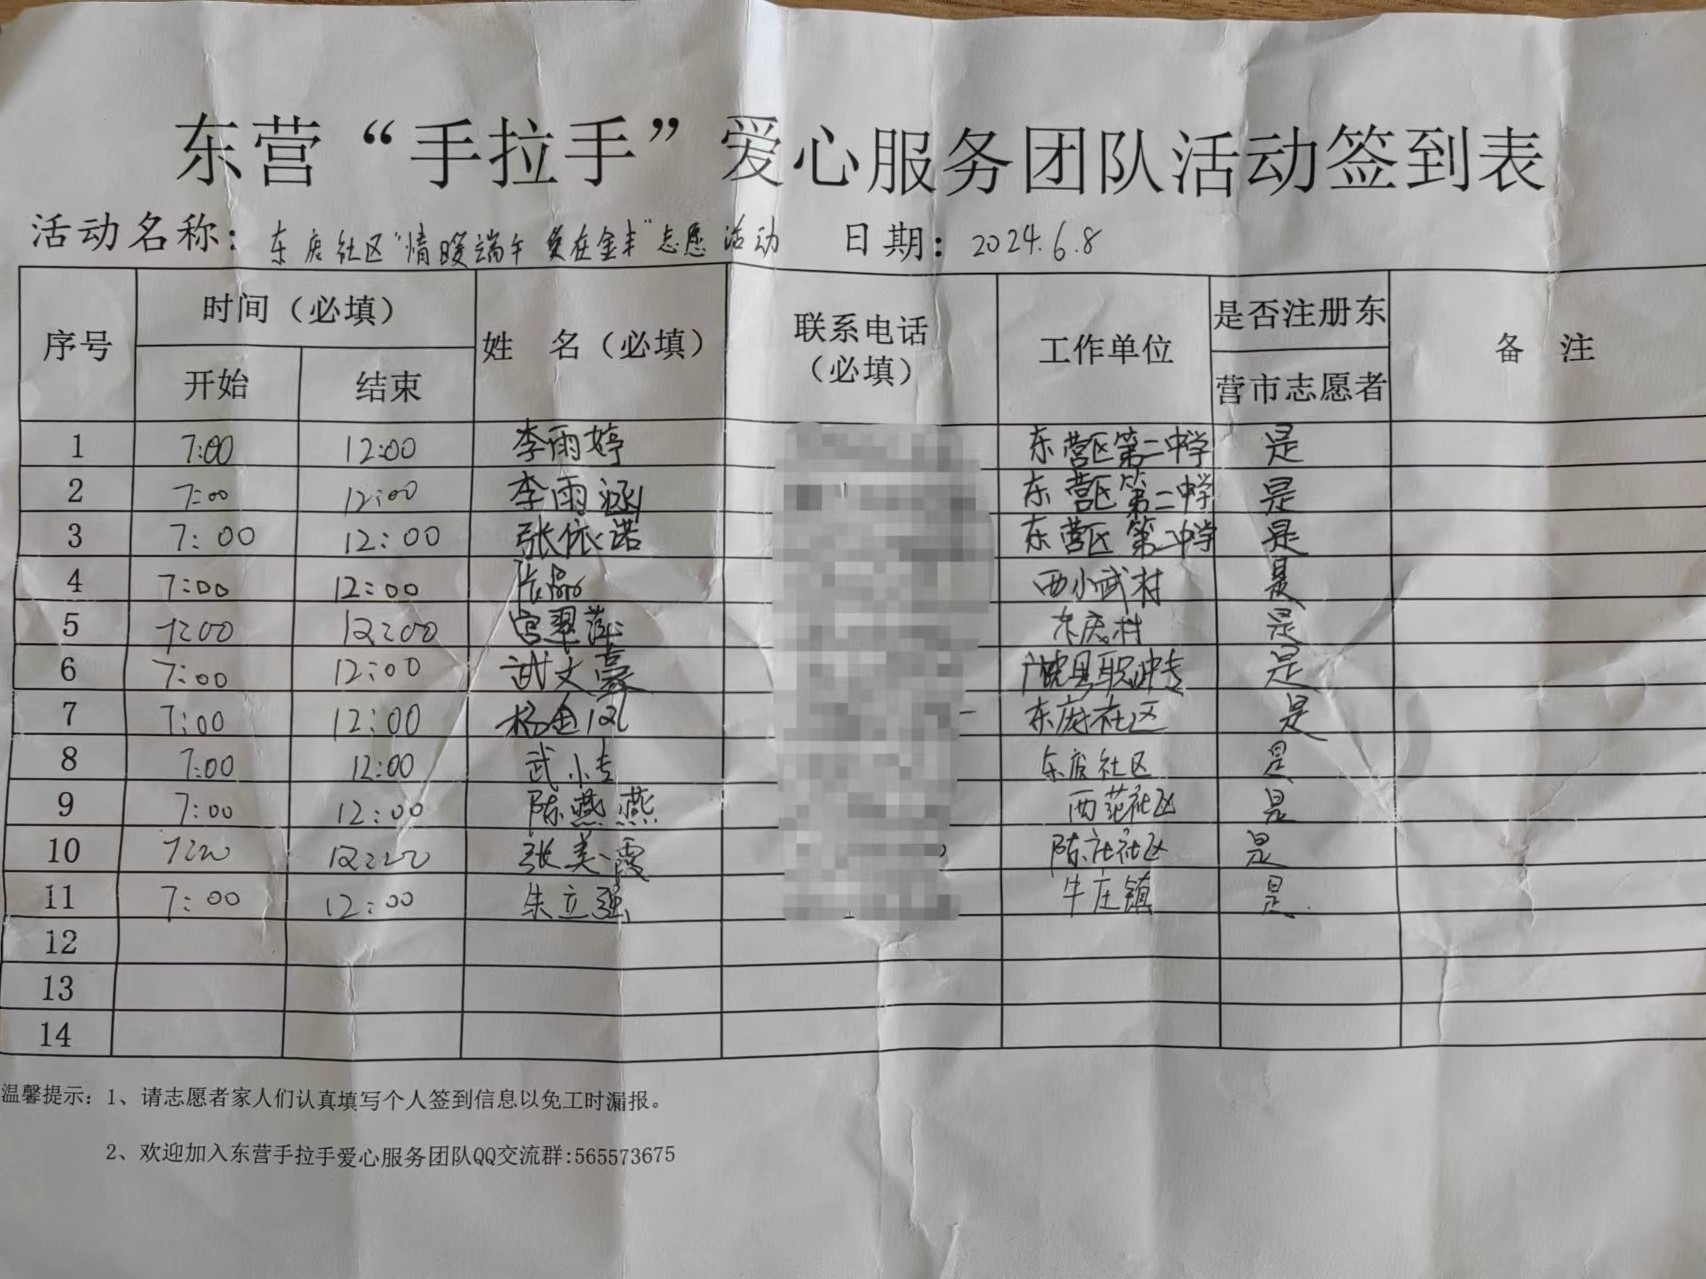 东营“手拉手”爱心服务团队活动签到表
活动名称：东店社区“情暖端午 爱在金丰”志愿活动 日期：2024.6.8
序号 时间（必填） 姓 名（必填） 联系电话（必填） 工作单位 是否注册东营市志愿者 备 注
开始 结束
1 7:00 12:00 李雨婷 东营区第二中学 是
2 7:00 12:00 李雨涵 东营区第二中学 是
3 7:00 12:00 张依诺 东营区第二中学 是
4 7:00 12:00 西小武村 是
5 7:00 12:00 宫翠萍 村 是
6 7:00 12:00 武文豪 是
7 7:00 12:00 杨 社区 是
8 7:00 12:00 武小 东店社区 是
9 7:00 12:00 陈燕燕 西范社区 是
10 7:00 12:00 张美霞 陈庄社区 是
11 7:00 12:00 朱立强 牛庄镇 是
12
13
14
温馨提示：1、请志愿者家人们认真填写个人签到信息以免工时漏报。
2、欢迎加入东营手拉手爱心服务团队QQ交流群:565573675